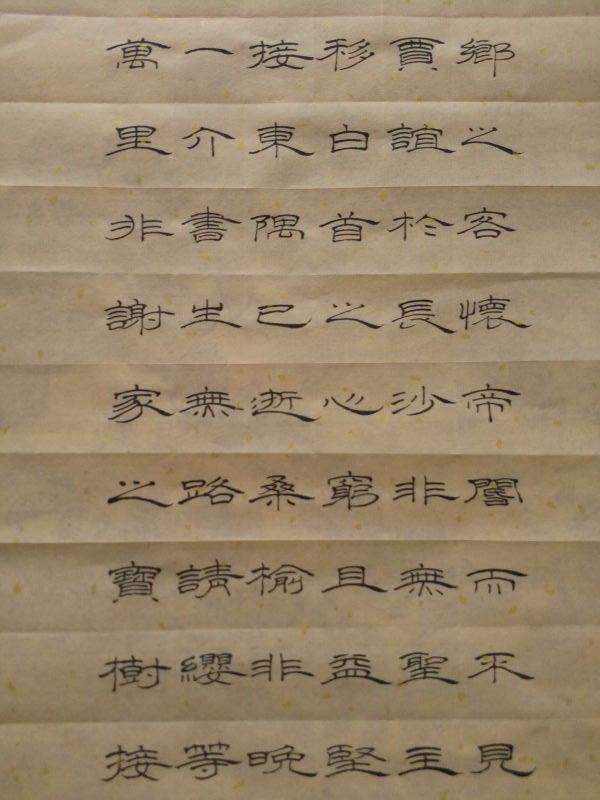 鄉之客懷帝閽而不見
賈誼於長沙非無聖主
移白首之心窮且益堅
接東隅已逝桑榆非晚
一介書生無路請纓等
萬里非謝家之寶樹接